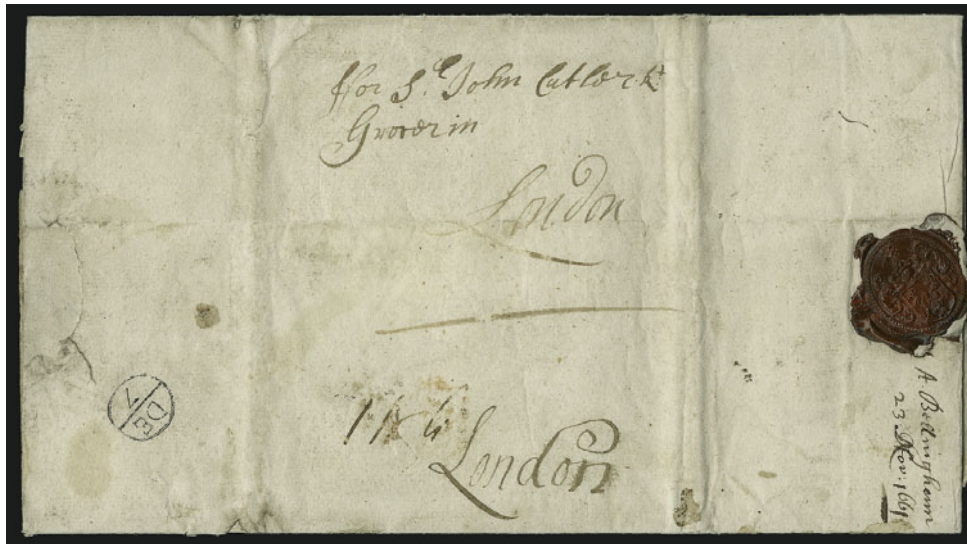 ffor Sr. John Cutler kt
Grocer in
London
London
DE
7
A Bellingheim
23 Nov: 1661